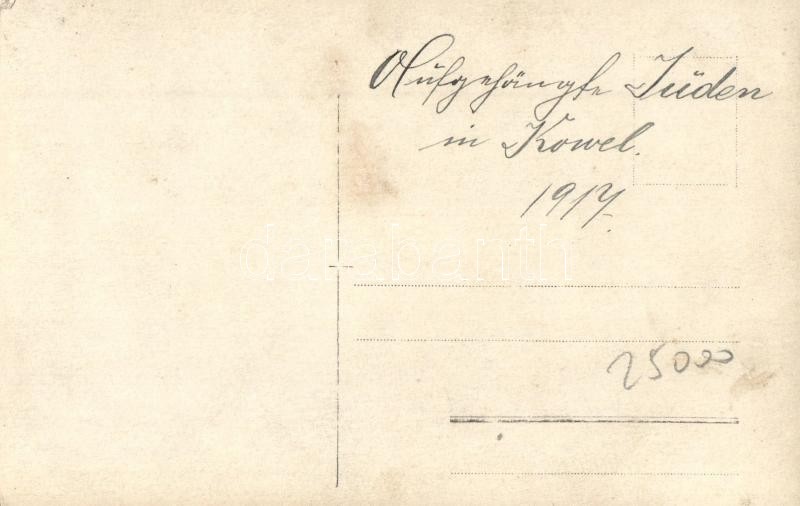 Aufgehängte Juden
in Kowel.
1917.
darabanth
25000